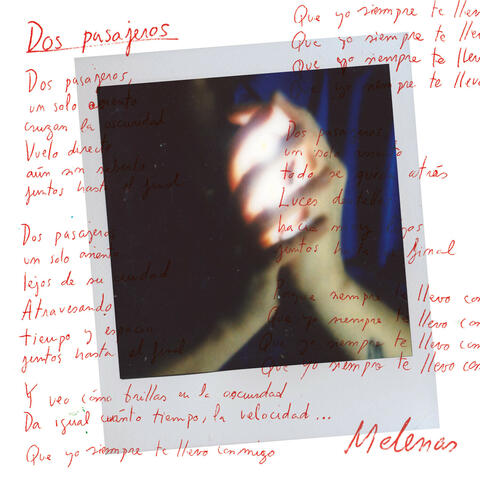 Dos pasajeros
Dos pasajeros,
un solo asiento
cruzan la oscuridad
Vuelo directo
aún sin saberlo
juntos hasta el final
Dos pasajeros
un solo asiento
lejos de su ciudad
Atravesando
tiempo y espacio
juntos hasta el final
Y veo cómo brillas en la oscuridad
Da igual cuánto tiempo, la velocidad...
Que yo siempre te llevo conmigo
Que yo siempre te llev
Que yo siempre te llev
Que yo siempre te llev
Que yo siempre te llev
Dos pasajeros
un solo asiento
todo se quedó atrás
Luces
hacia muy lejos
juntos hasta el final
Porque siempre te llevo con
Que yo siempre te llevo con
Que yo siempre te llevo con
Que yo siempre te llevo con
Melenas